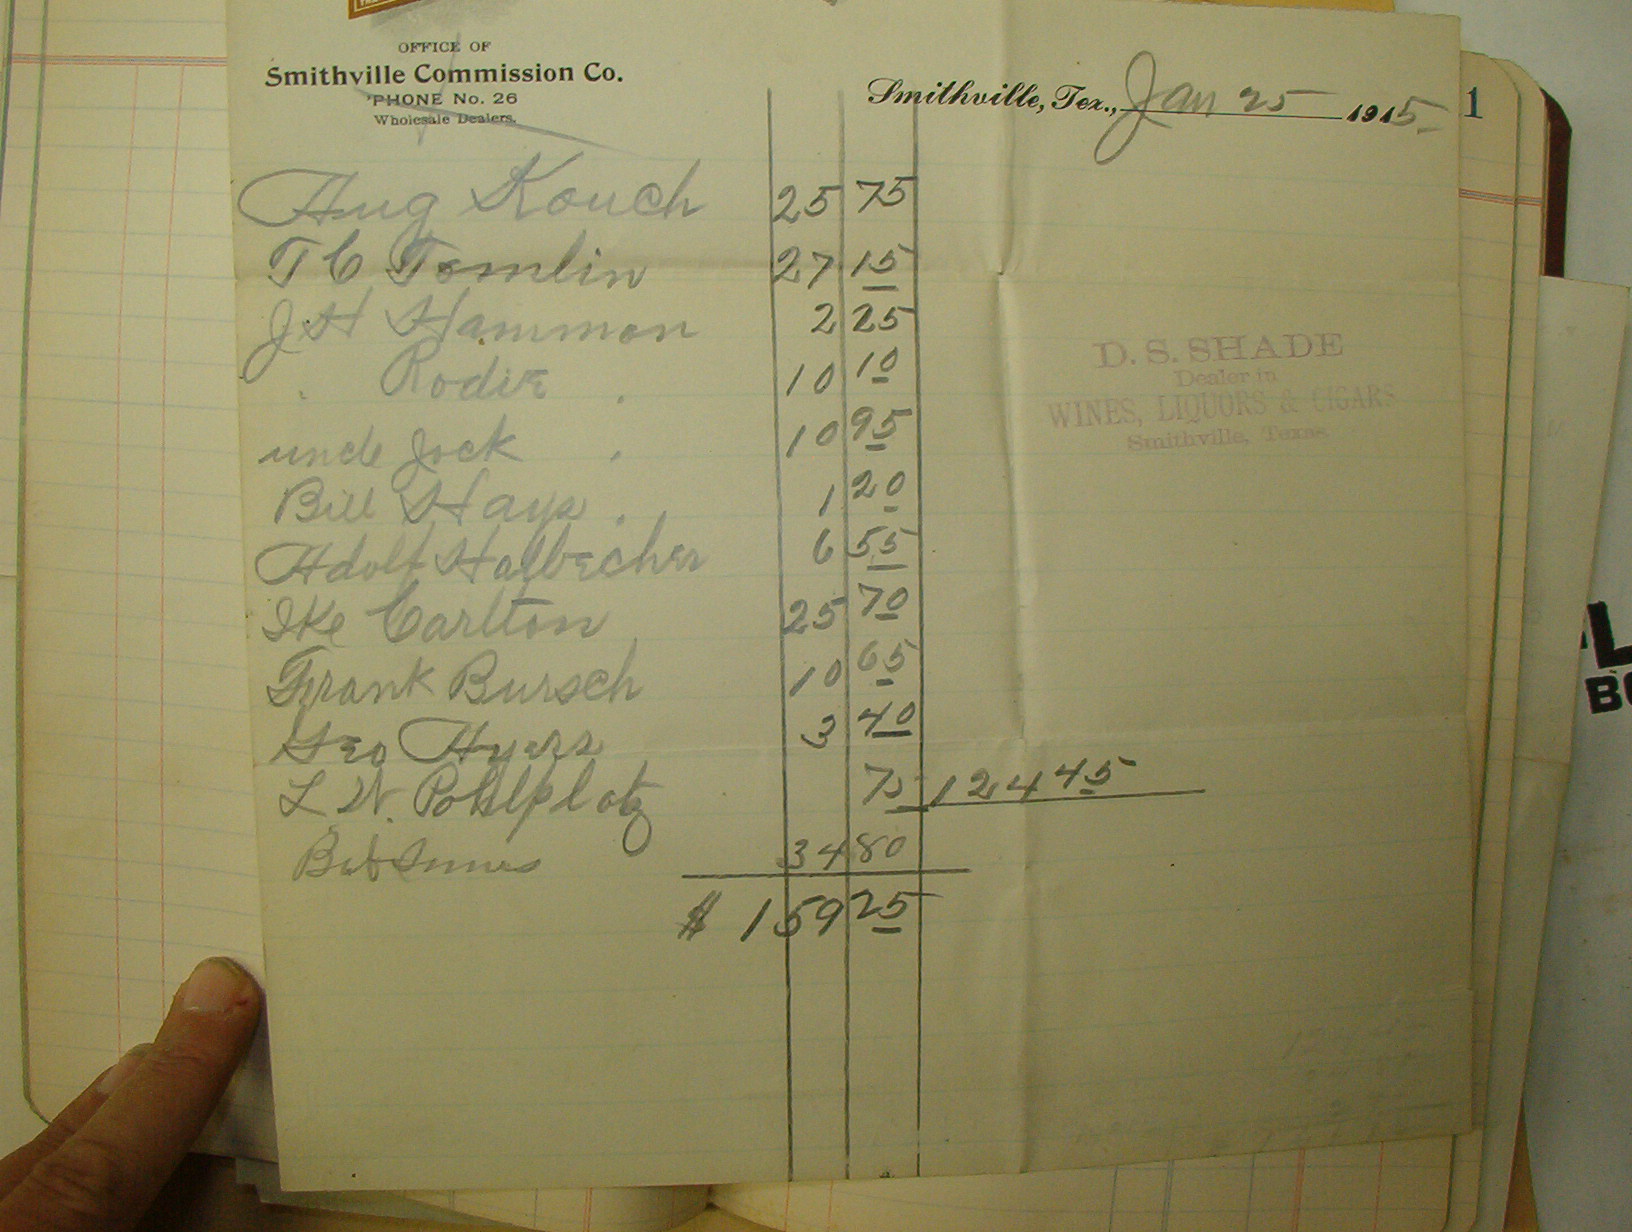 OFFICE OF
Smithville Commission Co.
'PHONE No. 26
Wholesale Dealers.
Smithville, Tex., Jan 25 1915
1
Aug Kouch 25 75
T C Tomlin 27 15
J H Hammon 2 25
Rodie 10 10
uncle Jock 10 95
Bill Hays 1 20
Adolf Halbecher 6 55
Ike Carlton 25 70
Frank Bursch 10 65
Geo Hyers 3 40
L W. Pohlplotz 75 124 45
Bob 34 80
$ 159 25
D. S. SHADE
Dealer in
WINES, LIQUORS & CIGARS
Smithville, Texas